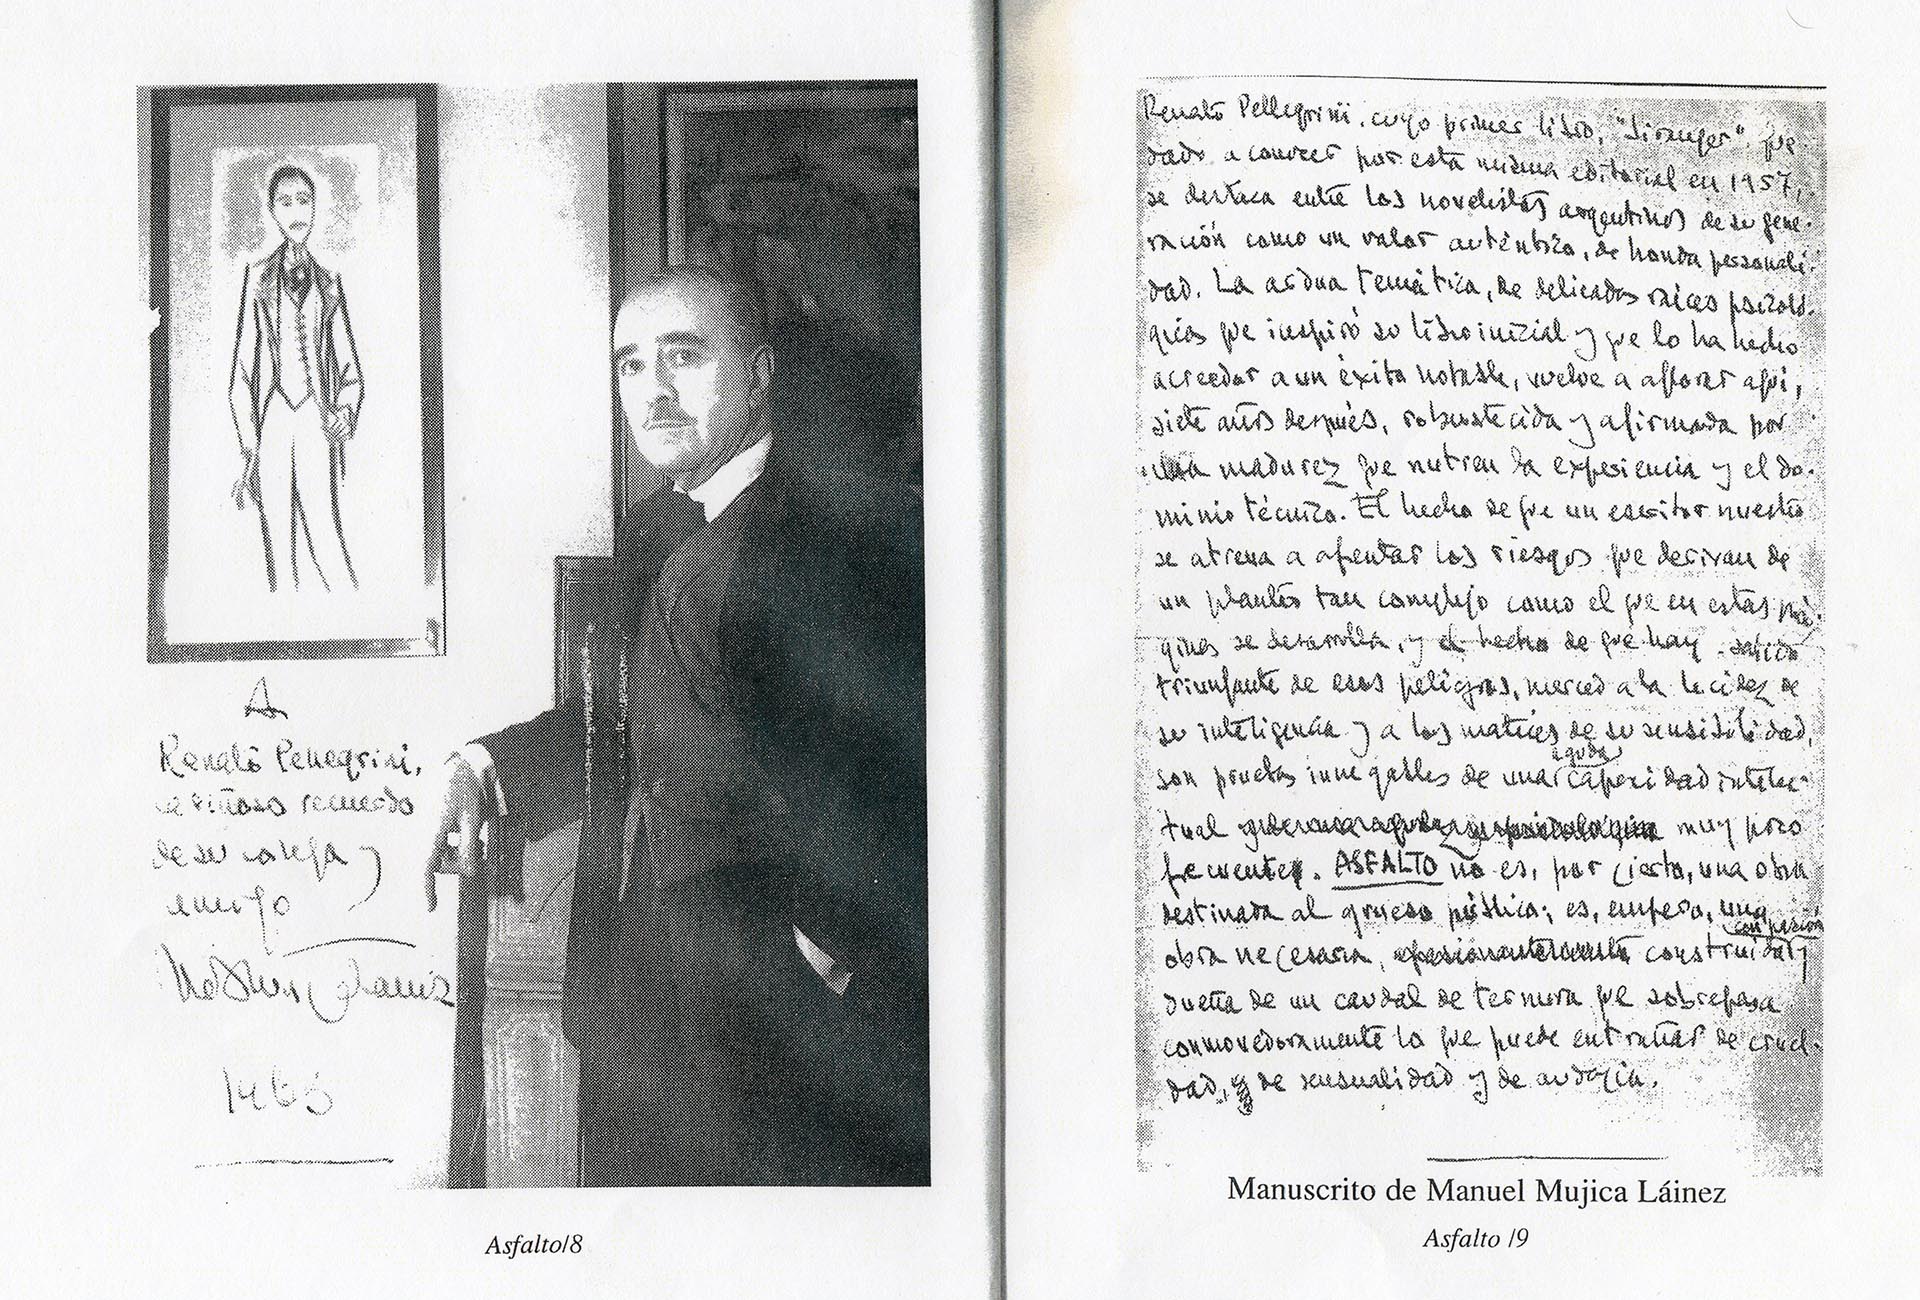 A
Renato Pellegrini,
cariñoso recuerdo
de su colega y
amigo
1963
Asfalto/8
Renato Pellegrini, cuyo primer libro, "Siranger" fue
dado a conocer por esta misma editorial en 1957,
se destaca entre los novelistas argentinos de su gene-
ración como un valor auténtico, de honda personali-
dad. La ardua temática, de delicadas raíces psicoló-
gicas que inspiró su libro inicial y que lo ha hecho
acreedor a un éxito notable, vuelve a aflorar aquí,
siete años después, robustecida y afirmada por
una madurez que nutren la experiencia y el do-
minio técnico. El hecho de que un escritor nuestro
se atreva a afrontar los riesgos que derivan de
un planteo tan complejo como el que en estas pá-
ginas se desarrolla, y el hecho de que haya salido
triunfante de esos peligros, merced a la lucidez de
su inteligencia y a los matices de su sensibilidad,
son pruebas innegables de una aguda capacidad intelec-
tual muy poco
frecuente. ASFALTO no es, por cierto, una obra
destinada al grueso público; es, empero, una
obra necesaria, construida con pasión y
dueña de un caudal de ternura que sobrepasa
conmovedoramente lo que puede entrañar de cruel-
dad, y de sensualidad y de audacia.
Manuscrito de Manuel Mujica Láinez
Asfalto /9